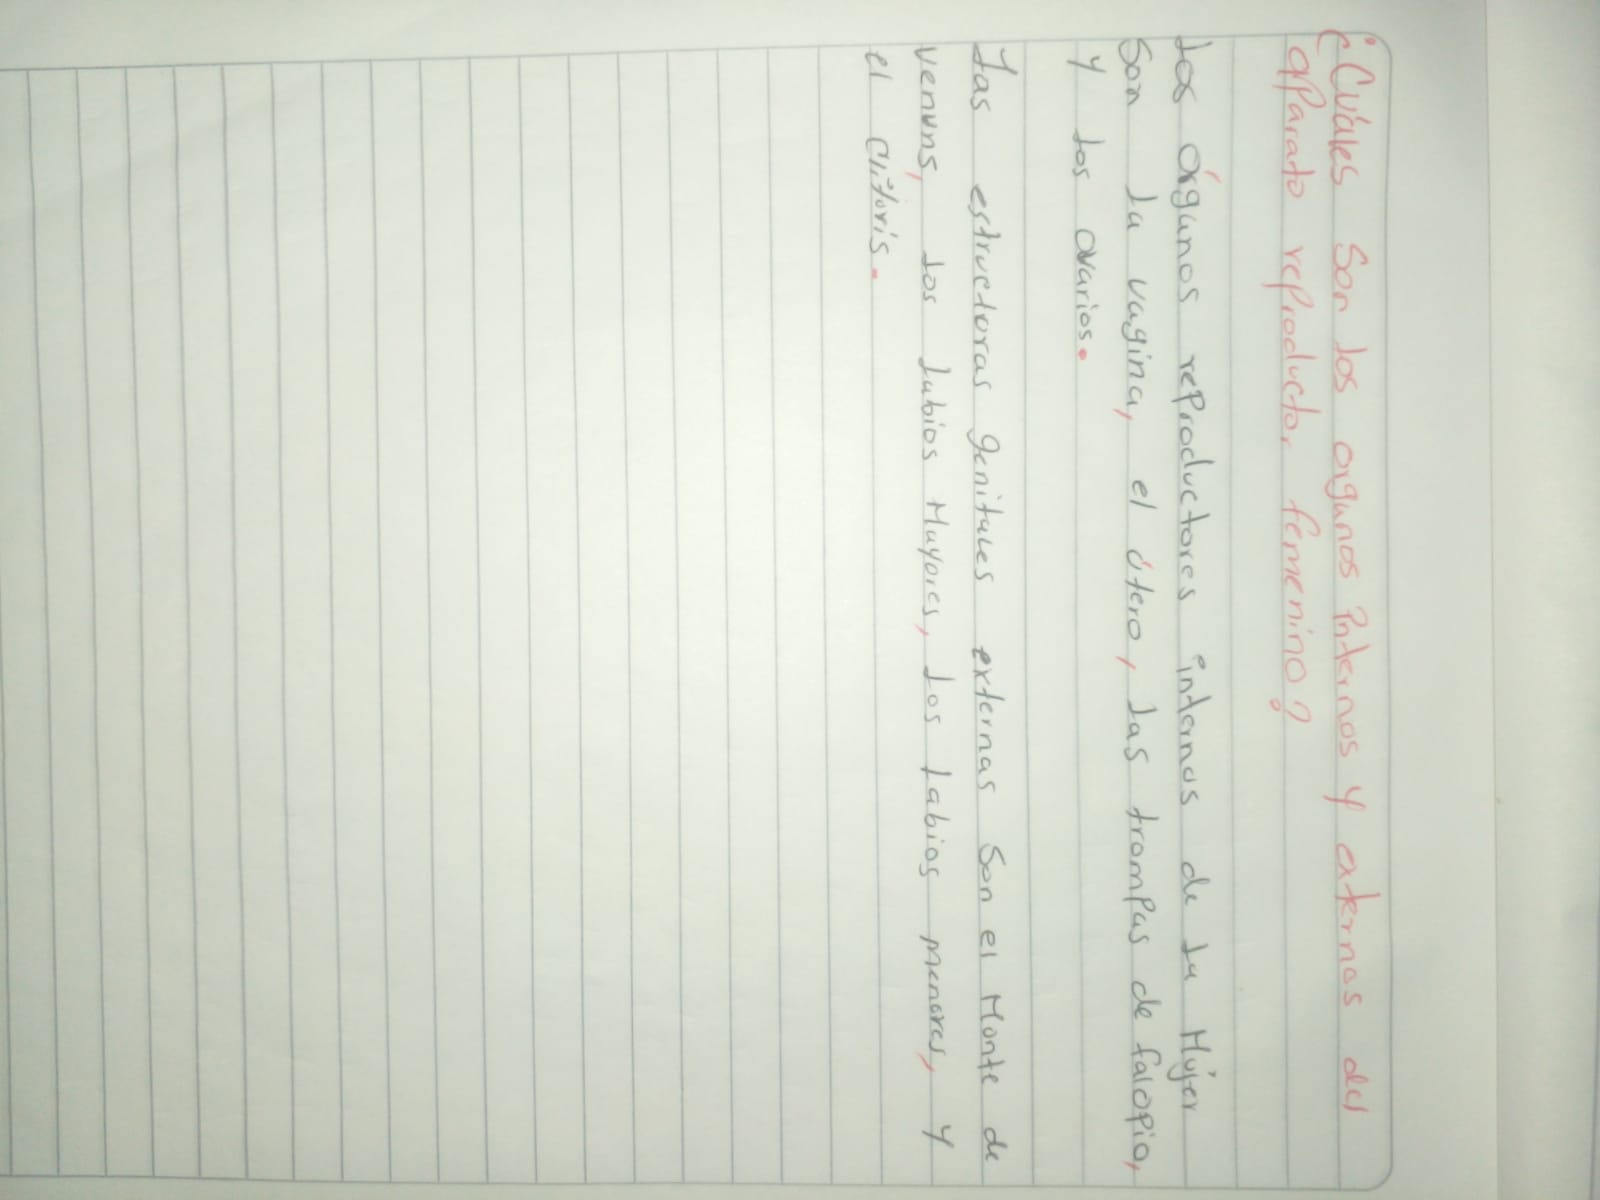 ¿Cuáles Son los organos internos y externos del
aparato reproductor femenino?
Los órganos reproductores internos de la Mujer
Son la vagina, el útero, las trompas de falopio,
y los ovarios.
Las estructuras genitales externas Son el Monte de
venuns, los labios Mayores, los labios menores, y
el clítoris.